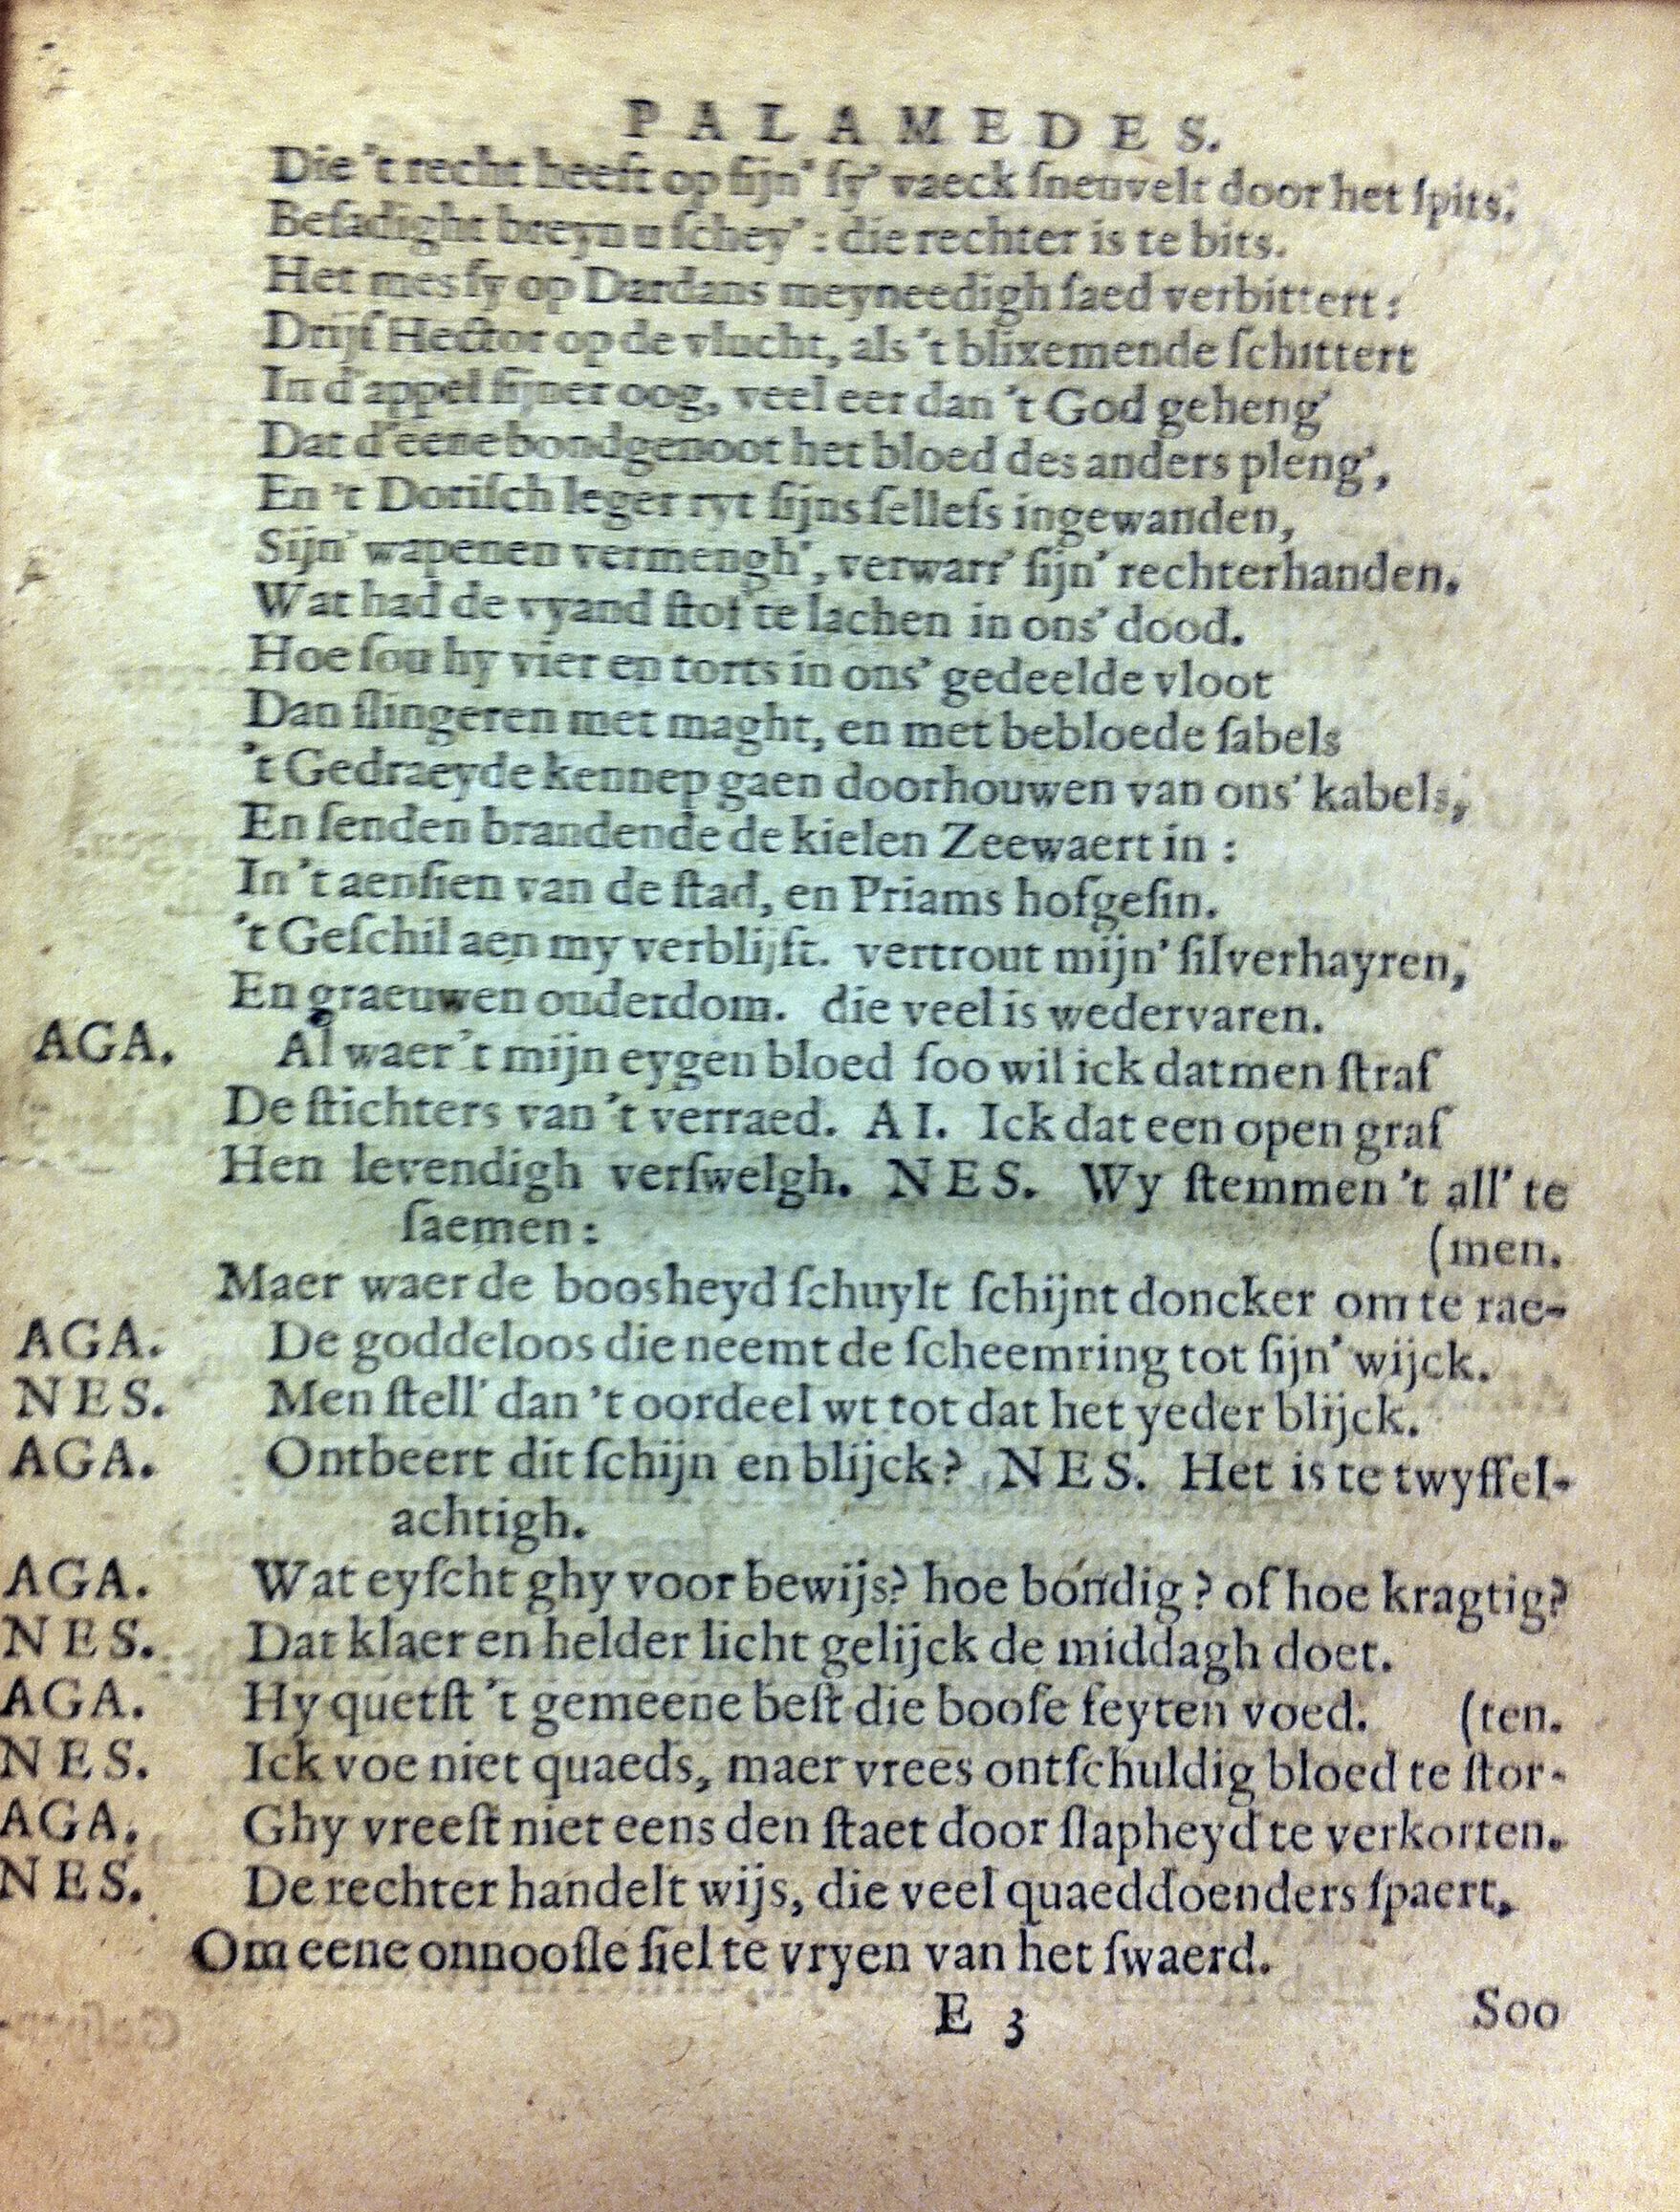 PALAMEDES.
Die 't recht heeft op ſijn' ſy' vaeck ſneuvelt door het ſpits.
Beſadight breyn u ſchey' : die rechter is te bits.
Het mes ſy op Dardans meyneedigh ſaed verbittert :
Drijf Hector op de vlucht, als 't blixemende ſchittert
In d'appel ſijner oog, veel eer dan 't God geheng'
Dat d'eene bondgenoot het bloed des anders pleng',
En 't Doriſch leger ryt ſijns ſelleſs ingewanden,
Sijn' wapenen vermengh', verwarr' ſijn' rechterhanden.
Wat had de vyand ſtof te lachen in ons' dood.
Hoe ſou hy vier en torts in ons' gedeelde vloot
Dan ſlingeren met maght, en met bebloede ſabels
't Gedraeyde kennep gaen doorhouwen van ons' kabels,
En ſenden brandende de kielen Zeewaert in :
In 't aenſien van de ſtad, en Priams hofgeſin.
't Geſchil aen my verblijft. vertrout mijn' ſilverhayren,
En graeuwen ouderdom. die veel is wedervaren.
AGA. Al waer't mijn eygen bloed ſoo wil ick datmen ſtraf
De ſtichters van 't verraed. AI. Ick dat een open graf
Hen levendigh verſwelgh. NES. Wy ſtemmen 't all' te
ſaemen : (men.
Maer waer de boosheyd ſchuylt ſchijnt doncker om te rae-
AGA. De goddeloos die neemt de ſcheemring tot ſijn' wijck.
NES. Men ſtell' dan 't oordeel wt tot dat het yeder blijck.
AGA. Ontbeert dit ſchijn en blijck? NES. Het is te twyffel-
achtigh.
AGA. Wat eyſcht ghy voor bewijs? hoe bondig? of hoe kragtig?
NES. Dat klaer en helder licht gelijck de middagh doet.
AGA. Hy quetſt 't gemeene beſt die booſe feyten voed. (ten.
NES. Ick voe niet quaeds, maer vrees ontſchuldig bloed te ſtor-
AGA. Ghy vreeſt niet eens den ſtaet door ſlapheyd te verkorten.
NES. De rechter handelt wijs, die veel quaeddoenders ſpaert,
Om eene onnooſle ſiel te vryen van het ſwaerd.
E 3 Soo